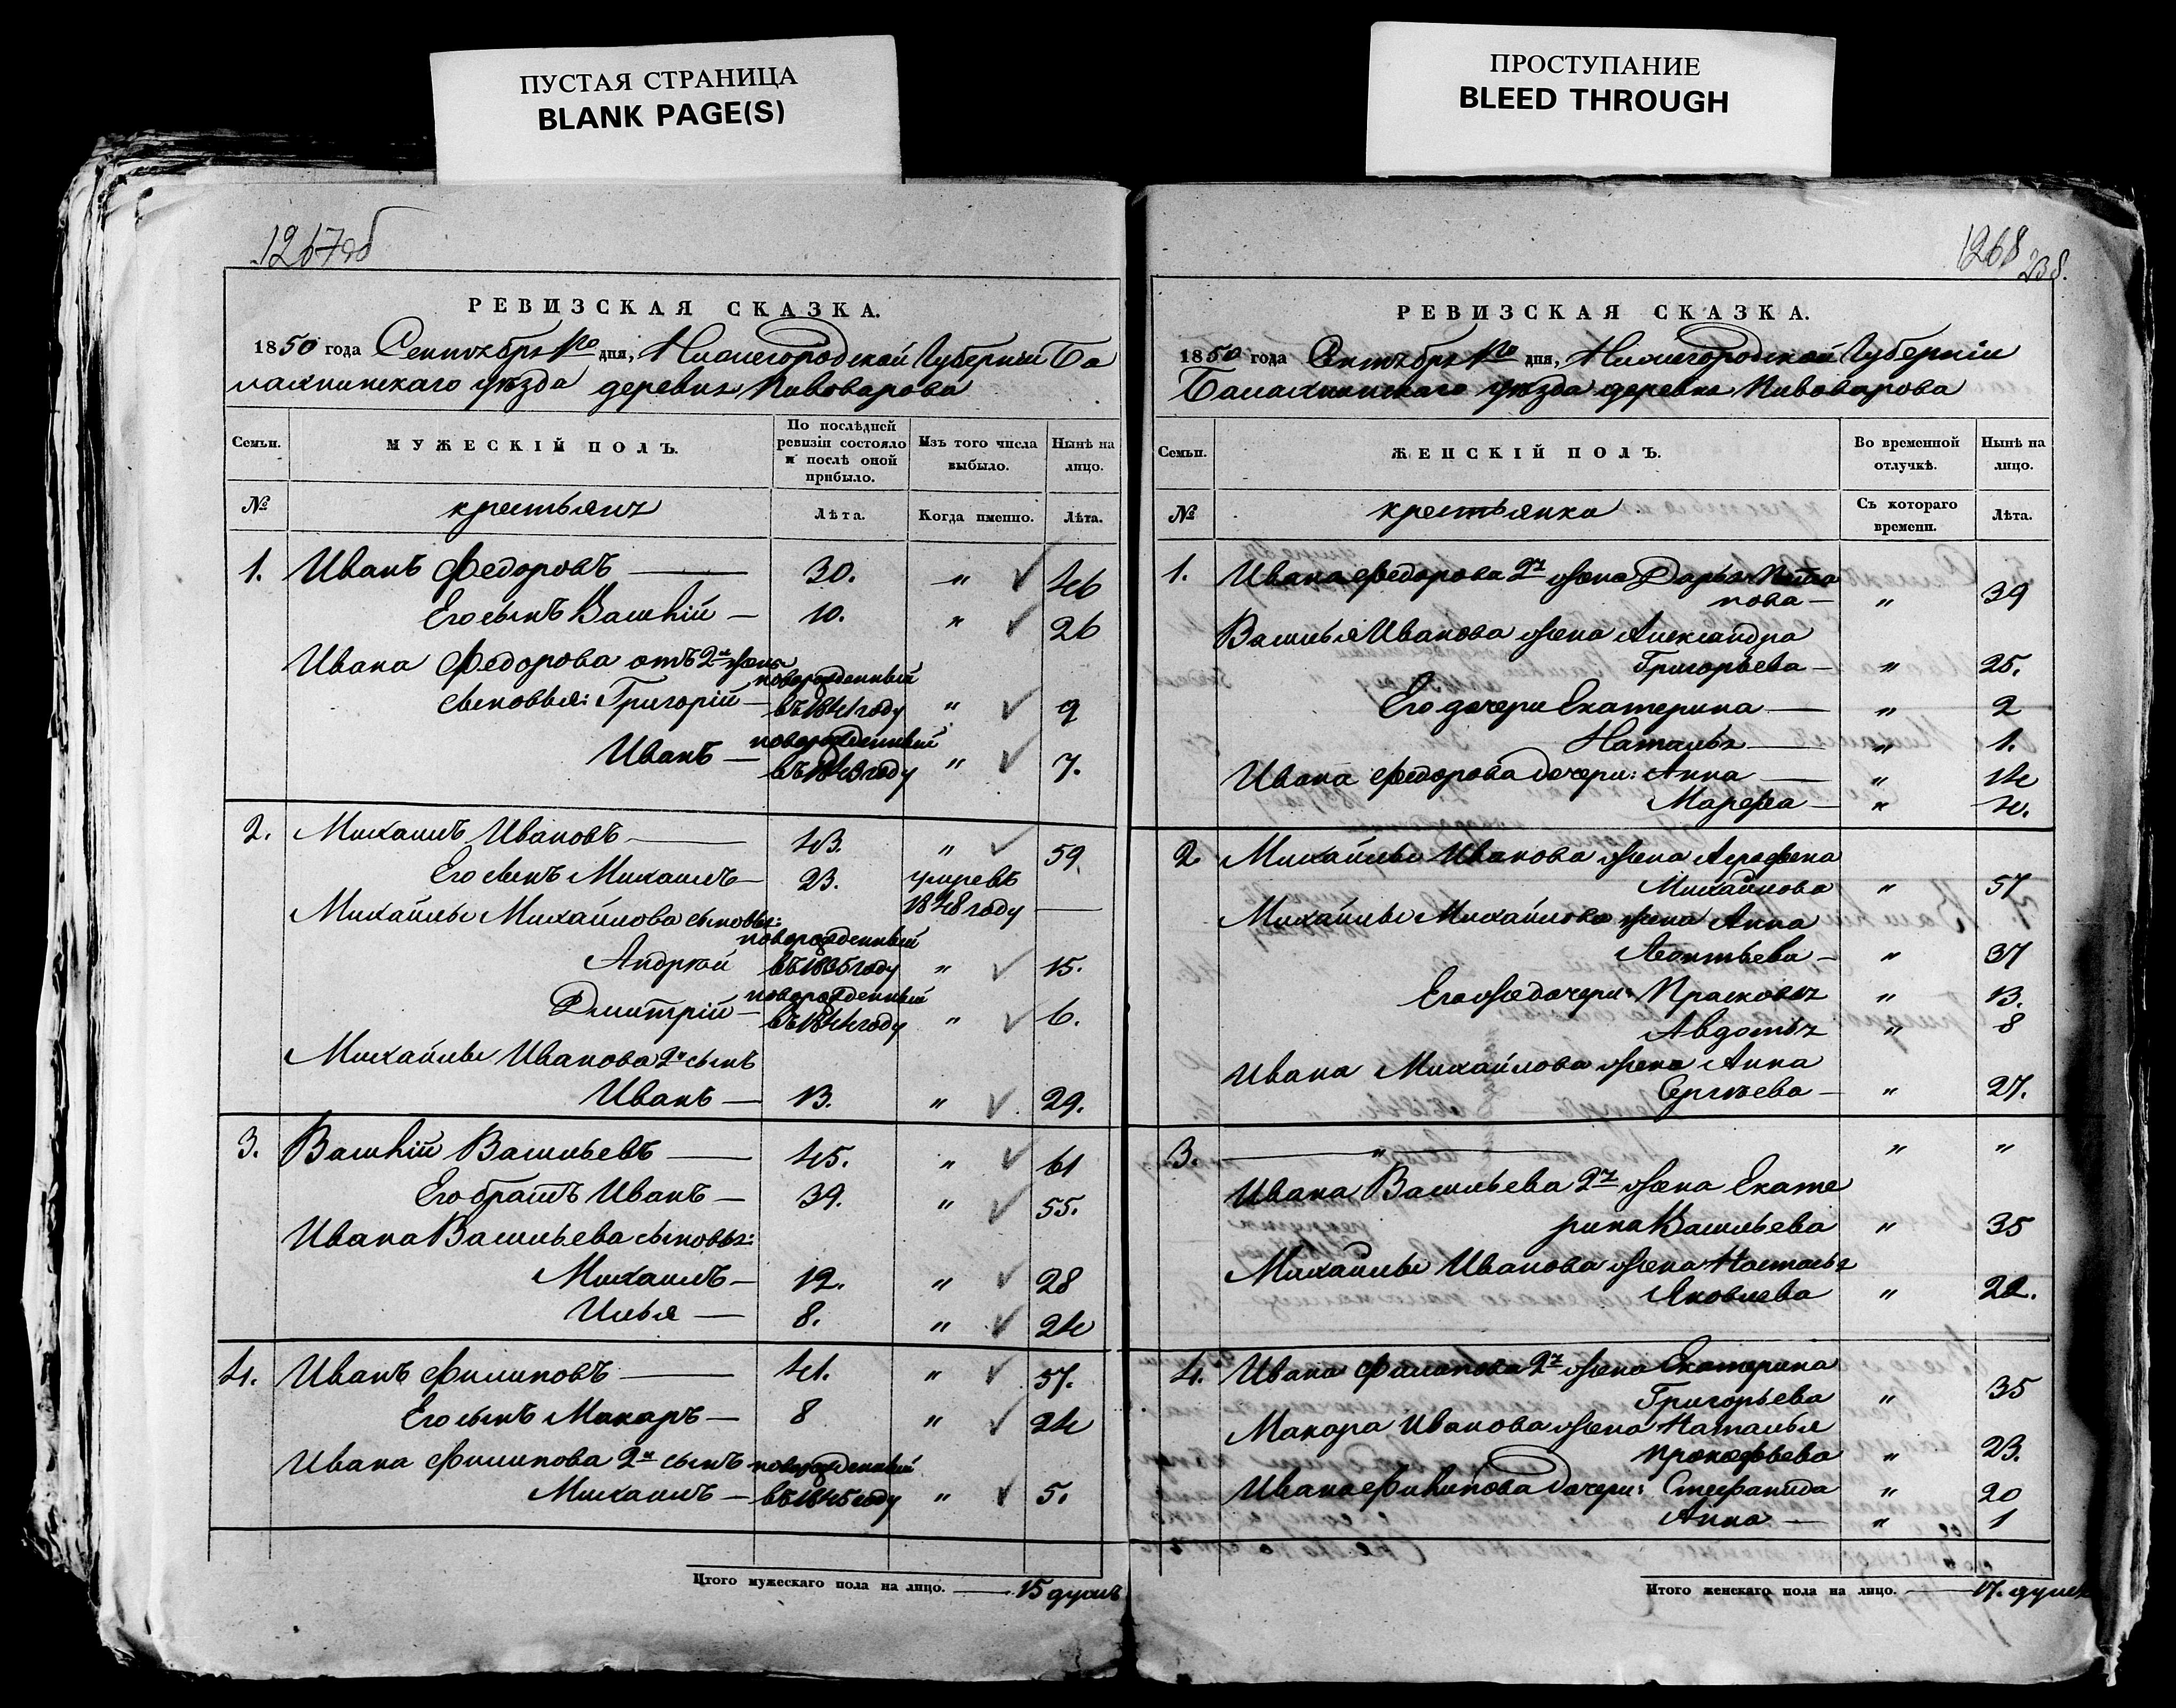 ПУСТАЯ СТРАНИЦА
BLANK PAGE(S)
ПРОСТУПАНИЕ
BLEED THROUGH
1267об
РЕВИЗСКАЯ СКАЗКА.
1850 года Сентября 1го дня, Нижегородской Губерніи Ба
лахнинскаго уѣзда деревня Пивоварова
Семьи. МУЖЕСКІЙ ПОЛЪ. По послѣдней ревизіи состояло и послѣ оной прибыло. Изъ того числа выбыло. Нынѣ на лицо.
№ крестьянъ Лѣта. Когда именно. Лѣта.
1. Иванъ Федоровъ — 30. " 46
Его сынъ Василій — 10. " 26
Ивана Федорова отъ 2й жены
новорожденный
сыновья: Григорій — въ 1841 году " 9
новорожденный
Иванъ — въ 1843 году " 7.
2. Михаилъ Ивановъ — 43. " 59.
Его сынъ Михаилъ — 23. умревъ
1848 году —
Михайлы Михайлова сыновья:
новорожденный
Андрей въ 1835 году " 15.
новорожденный
Дмитрій — въ 1844 году " 6.
Михайлы Иванова 2й сынъ
Иванъ — 13. " 29.
3. Василій Васильевъ — 45. " 61
Его братъ Иванъ — 39. " 55.
Ивана Васильева сыновья:
Михаилъ — 12. " 28
Илья — 8. " 24
4. Иванъ Филиповъ — 41. " 57.
Его сынъ Макаръ — 8 " 24
Ивана Филипова 2й сынъ новорожденный
Михаилъ — въ 1845 году " 5.
Итого мужескаго пола на лицо. — 15 душъ
1268
238.
РЕВИЗСКАЯ СКАЗКА.
1850 года Сентября 1го дня, Нижегородской Губерніи
Балахнинскаго уѣзда деревня Пивоварова
Семьи. ЖЕНСКІЙ ПОЛЪ. Во временной отлучкѣ. Нынѣ на лицо.
№ крестьянка Съ котораго времени. Лѣта.
1. Ивана Федорова 2я жена Дарья
нова — " 39
Василья Иванова жена Александра
Григорьева — " 25.
Его дочери Екатерина — " 2
Наталья — " 1.
Ивана Федорова дочери: Анна — " 14
Марфа — " 4.
2 Михайлы Иванова жена Аграфена
Михайлова " 57
Михайлы Михайлова жена Анна
Леонтьева — " 37
Его же дочери: Прасковья " 13.
Авдотья " 8
Ивана Михайлова жена Анна
Сергѣева — " 27.
3. — " — " "
Ивана Васильева 2я жена Екате
рина Васильева " 35
Михайлы Иванова жена Наталья
Яковлева " 22.
4. Ивана Филипова 2я жена Екатерина
Григорьева " 35
Макара Иванова жена Наталья
Прокофьева " 23.
Ивана Филипова дочери: Стефанида " 20
Анна — " 1
Итого женскаго пола на лицо. — 17. душъ